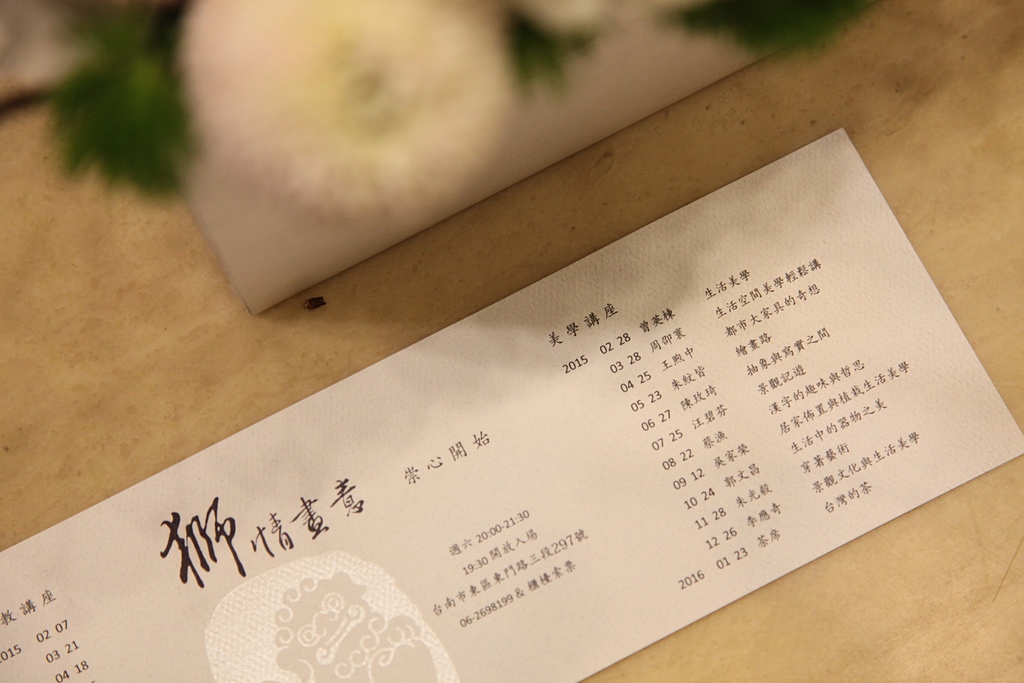 教講座
2015 02 07
03 21
04 18
獅情畫意
崇心開始
週六 20:00-21:30
19:30 開放入場
台南市東區東門路三段297號
06-2698199 & 櫃檯索票
美學講座
2015 02 28 曾英棟 生活美學
03 28 周卲寰 生活空間美學輕鬆講
04 25 王煦中 都市大家具的奇想
05 23 朱紋皆 繪畫路
06 27 陳玫琦 抽象與寫實之間
07 25 汪碧芬 景觀記遊
08 22 蔡漁 漢字的趣味與哲思
09 12 吳家榮 居家佈置與植栽生活美學
10 24 郭文昌 生活中的器物之美
11 28 朱光毅 穿著藝術
12 26 李應奇 景觀文化與生活美學
2016 01 23 茶席 台灣的茶